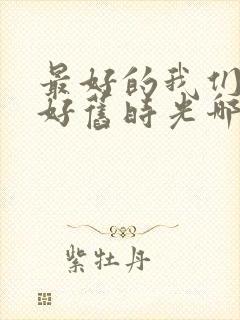 最好的我们
好旧時光哪
紫牡丹